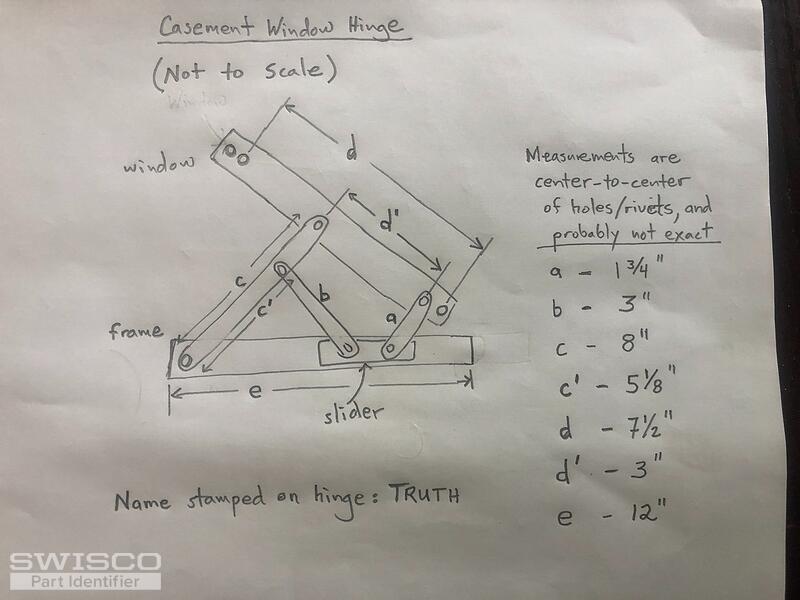 Casement Window Hinge
(Not to scale)
window
d
d'
c
c'
b
a
frame
e
slider
Measurements are
center-to-center
of holes/rivets, and
probably not exact
a - 1 3/4"
b - 3"
c - 8"
c' - 5 1/8"
d - 7 1/2"
d' - 3"
e - 12"
Name stamped on hinge: TRUTH
SWISCO
Part Identifier